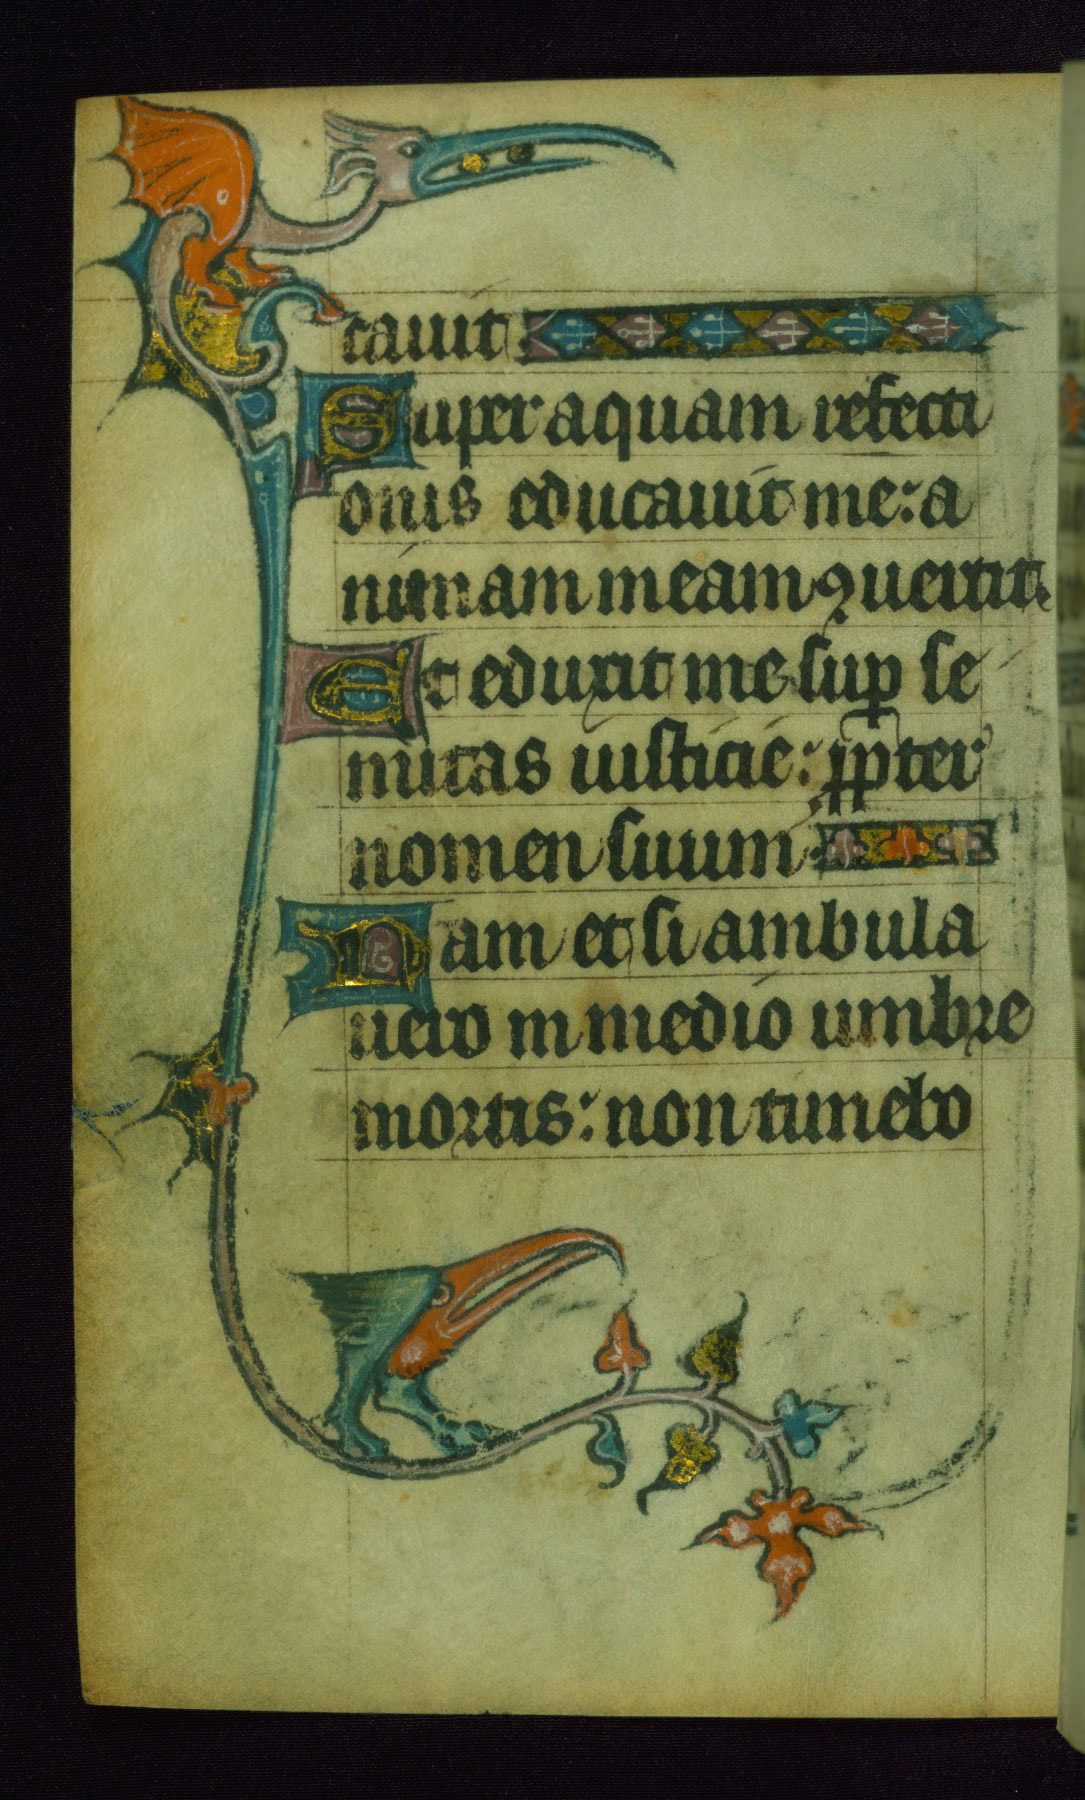 cauit.
Super aquam refecti
onis educauit me: a
nimam meam ꝯuertit.
Et eduxit me sup se
mitas iusticie: ppter
nomen suum.
Nam et si ambula
uero in medio umbre
mortis: non timebo